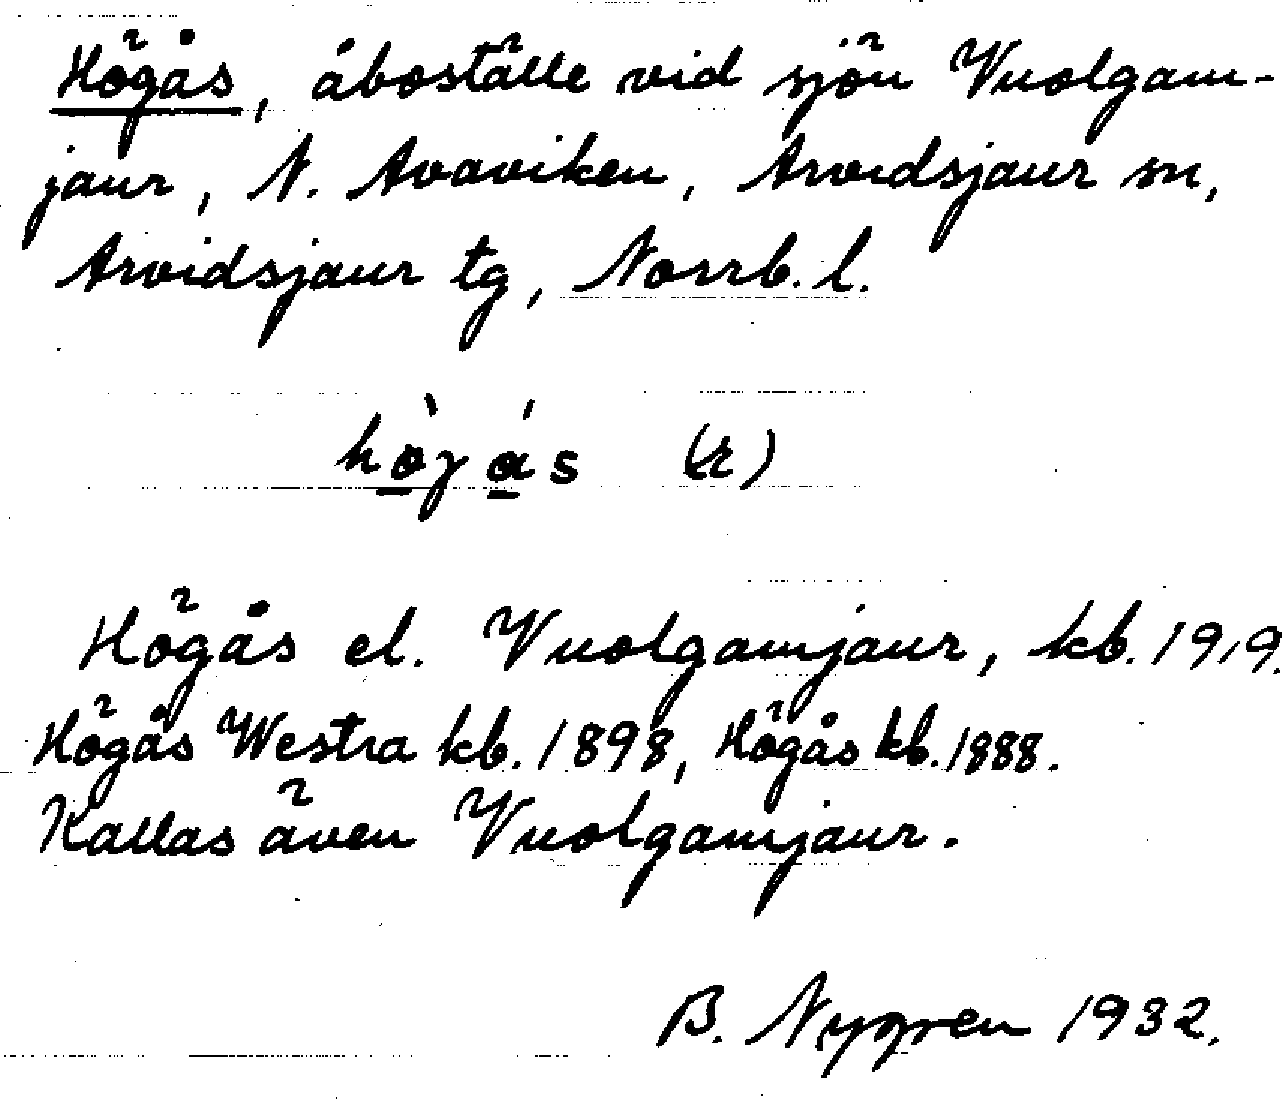 Högås, åboställe vid sjön Vuolgam-
jaur, N. Avaviken, Arvidsjaur sn,
Arvidsjaur tg, Norrb. l.
hò̱γá̱s (r)
Högås el. Vuolgamjaur, kb. 1919.
Högås Westra kb. 1898, Högås kb. 1888.
Kallas även Vuolgamjaur.
B. Nygren 1932.